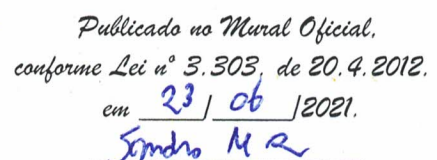 Publicado no Mural Oficial,
conforme Lei nº 3.303, de 20.4.2012.
em 23/ 06 /2021.
Sandro M